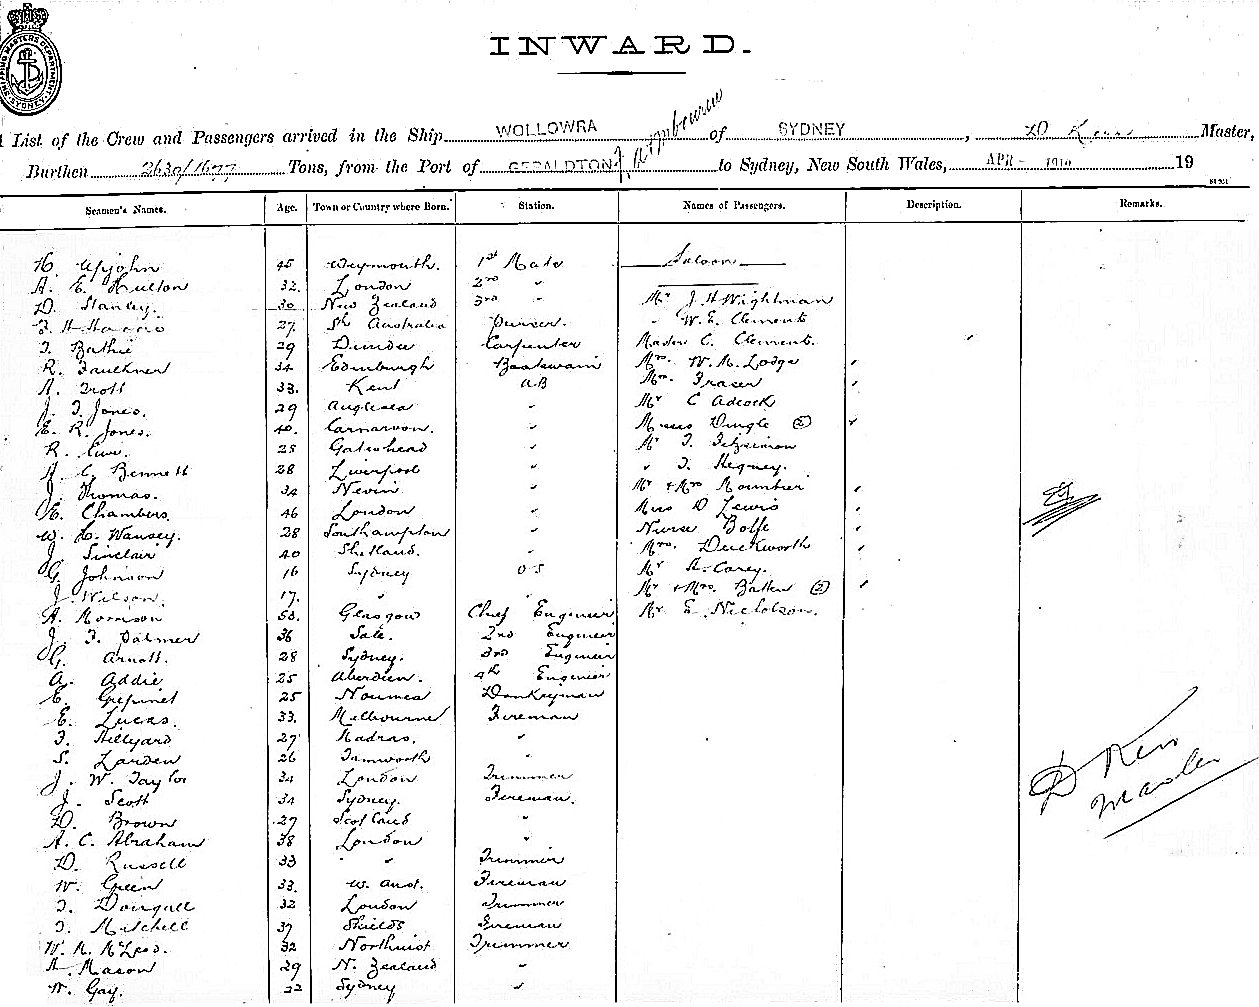 SHIPPING MASTERS DEPARTMENT SYDNEY
INWARD.
A List of the Crew and Passengers arrived in the Ship WOLLOWRA of SYDNEY, D Kerr Master,
Burthen 2630/1677 Tons, from the Port of GERALDTON & Melbourne to Sydney, New South Wales, APR - 1910 19
Seamen's Names. Age. Town or Country where Born. Station. Names of Passengers. Description. Remarks.
H. Upjohn 45 Weymouth. 1st Mate Saloon
A. E. Hulton 32. London 2nd "
D. Stanley. 30 New Zealand 3rd " Mr J H Wightman
27. Sth Australia Purser. " W. E. Clements
J. Bathie 29 Dundee Carpenter Master C. Clements.
R. Faulkner 34 Edinburgh Boatswain Mrs. W. M. Lodge
A. Trott 33. Kent A.B Mrs. Fraser
J. T. Jones. 29 Anglesea " Mr C Adcock
E. R. Jones. 40. Carnarvon. " Misses Dingle (2)
R. 25 Gateshead " Mr T. Fitzsimon
A C. Bennett 28 Liverpool " " T. Hegney.
J. Thomas. 34 Nevin. " Mr & Mrs Mountier
E. Chambers. 46 London " Miss D Lewis
W. L. Wansey. 28 Southampton " Nurse Bolfe
J. Sinclair 40 Shetland. " Mrs. Duckworth
G. Johnson 16 Sydney O S Mr A. Carey.
J. Wilson. 17. " Mr & Mrs. Batten (2)
A. Morrison Glasgow Chief Engineer Mr. E. Nicholson.
J. F. Palmer 36 Sale. 2nd Engineer
G. Arnott. 28 Sydney. 3rd Engineer
A. Addie 25 Aberdeen. 4th Engineer
E. 25 Noumea Donkeyman
E. Lucas. 33. Melbourne Fireman
F. Hillyard 27 Madras. "
S. Larden 26 Tamworth "
J. W. Taylor 34 London Trimmer
J. Scott 34 Sydney. Fireman.
D. Brown 27 Scotland "
A. C. Abraham 38 London "
D. Russell 33 " " Trimmer
W. Green 33. W. Aust. Fireman
J. Dougall 32 London Trimmer
J. Mitchell 37 Shields Fireman
W. R. McLeod. 32 Northuist Trimmer
A. Mason 29 N. Zealand "
W. Gay. 22 Sydney "
D Kerr
Master